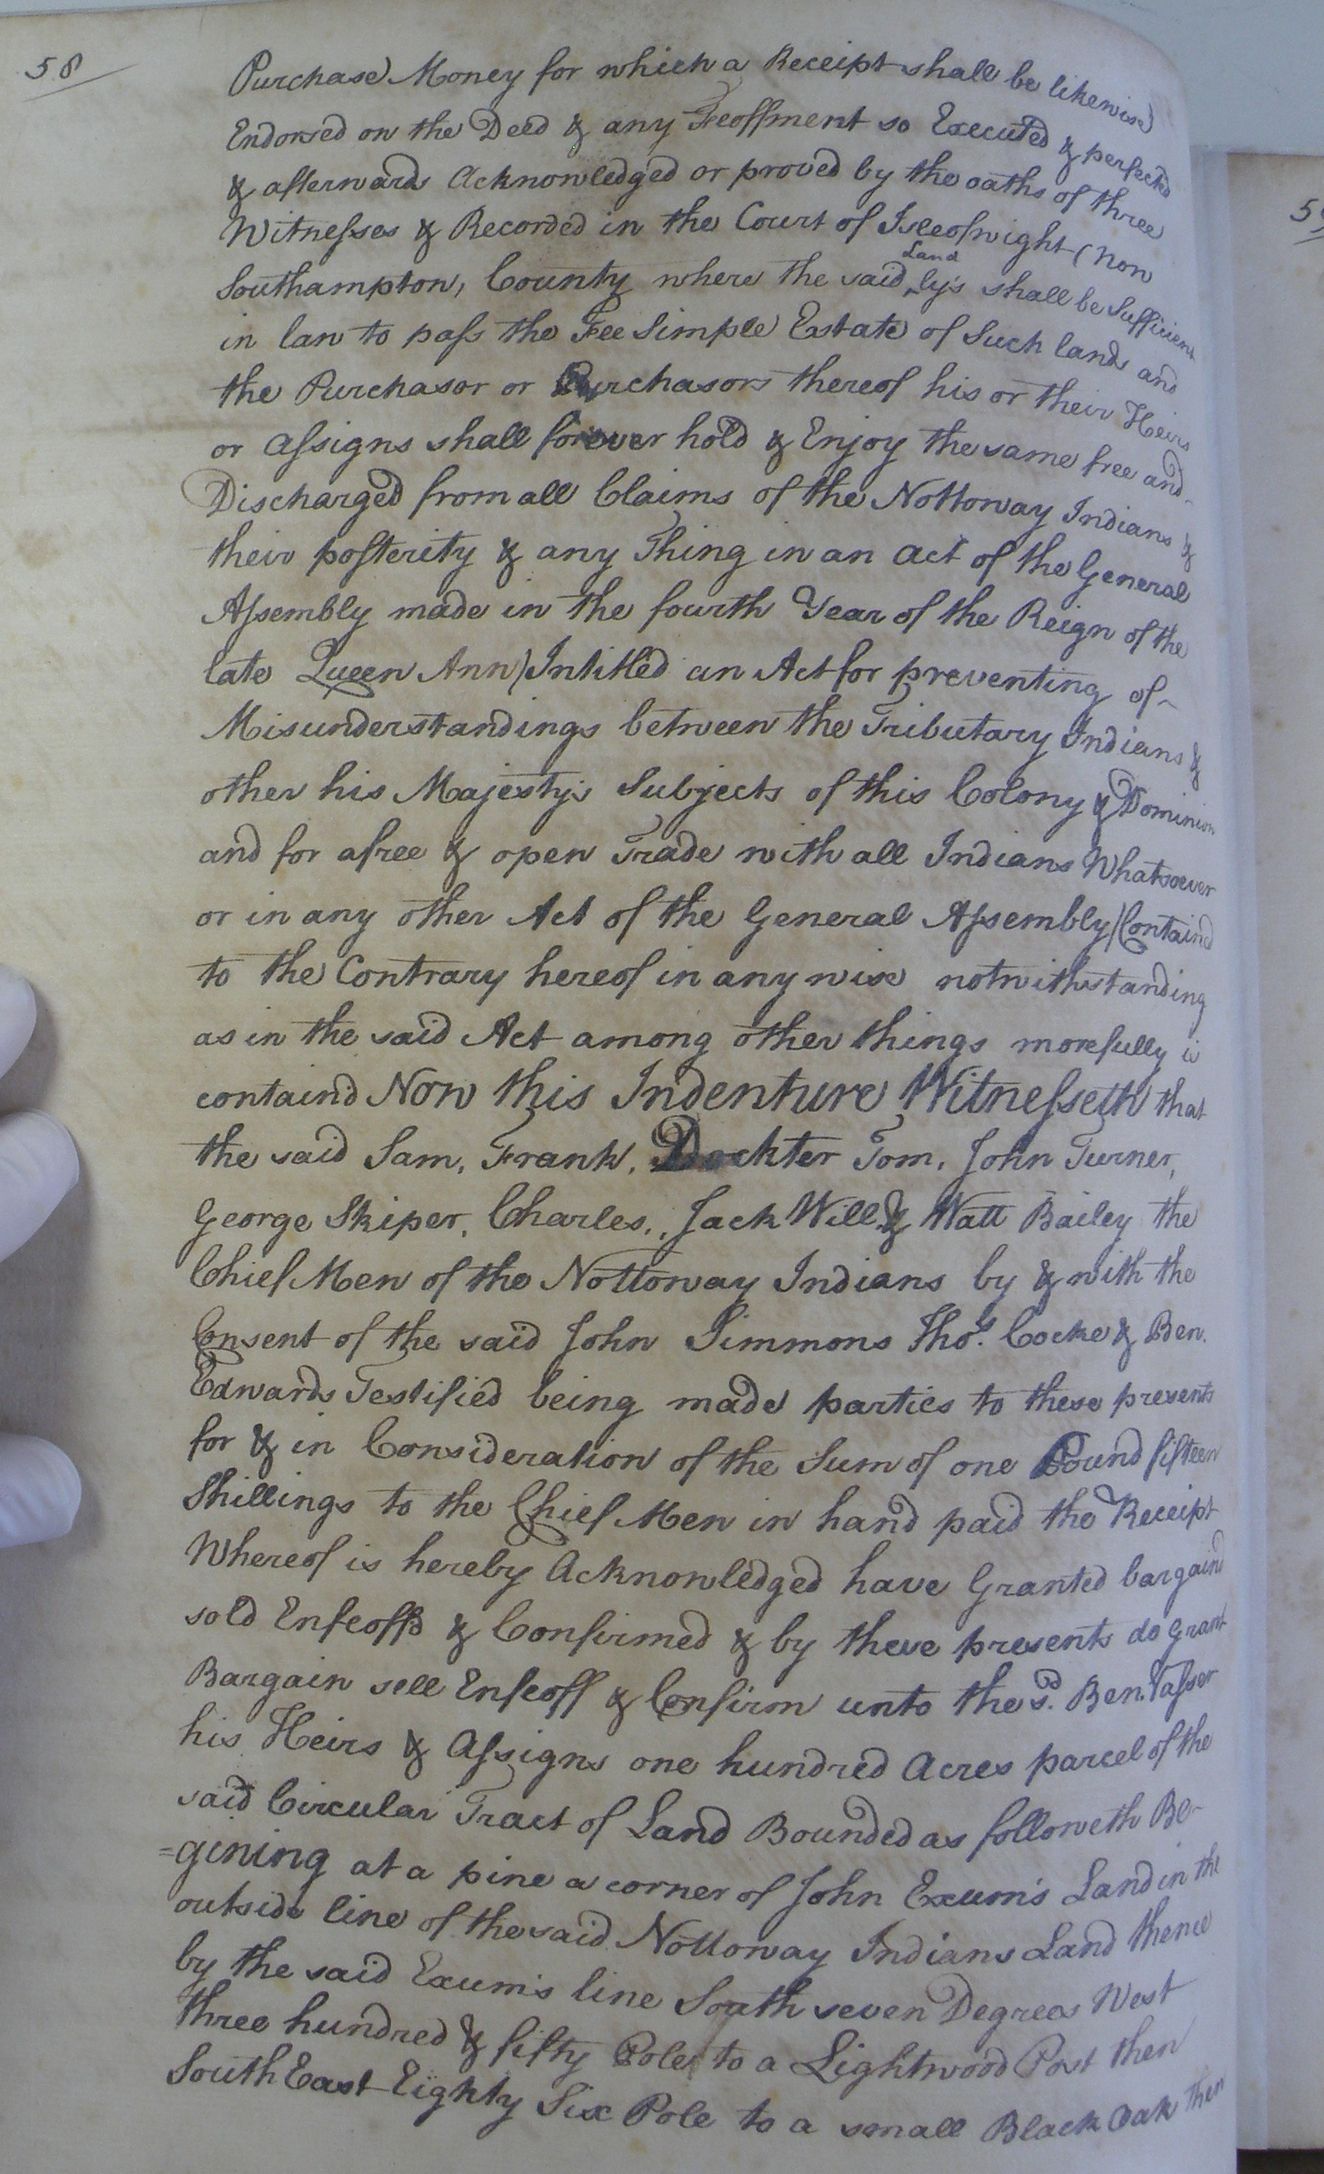 58
Purchase Money for which a Receipt shall be likewise
Endorsed on the Deed & any Feoffment so Executed & perfected
& afterwards Acknowledged or proved by the oaths of three
Witnesses & Recorded in the Court of Isleofwight (now
Southampton) County where the said Land ly's shall be Sufficient
in law to pass the Fee Simple Estate of Such lands and
the Purchasor or Purchasors thereof his or their Heirs
or assigns shall forever hold & Enjoy the same free and
Discharged from all Claims of the Nottoway Indians &
their posterity & any Thing in an act of the General
Assembly made in the fourth Year of the Reign of the
late Queen Ann) Intitled an Act for preventing of
Misunderstandings between the Tributary Indians &
other his Majesty's Subjects of this Colony & Dominion
and for a free & open Trade with all Indians Whatsoever
or in any other Act of the General Assembly) Containd
to the Contrary hereof in any wise notwithstanding
as in the said Act among other things morefully is
containd Now this Indenture Witnesseth that
the said Sam, Frank, Dockter Tom, John Turner,
George Skiper, Charles, Jack Will & Watt Bailey the
Chief Men of the Nottoway Indians by & with the
Consent of the said John Simmons Thos. Cocke & Ben.
Edwards Testified being made parties to these presents
for & in Consideration of the Sum of one Pound fifteen
Shillings to the Chief Men in hand paid the Receipt
Whereof is hereby Acknowledged have Granted bargaind
sold Enfeoffd & Confirmed & by these presents do Grant
Bargain sell Enfeoff & Confirm unto the sd. Ben. Vasser
his Heirs & Assigns one hundred Acres parcel of the
said Circular Tract of Land Bounded as followeth Be-
=gining at a pine a corner of John Exum's Land in the
outside line of the said Nottoway Indians Land thence
by the said Exum's line South seven Degrees West
three hundred & fifty Pole to a Lightwood Post then
South East Eighty Six Pole to a small Black Oak then